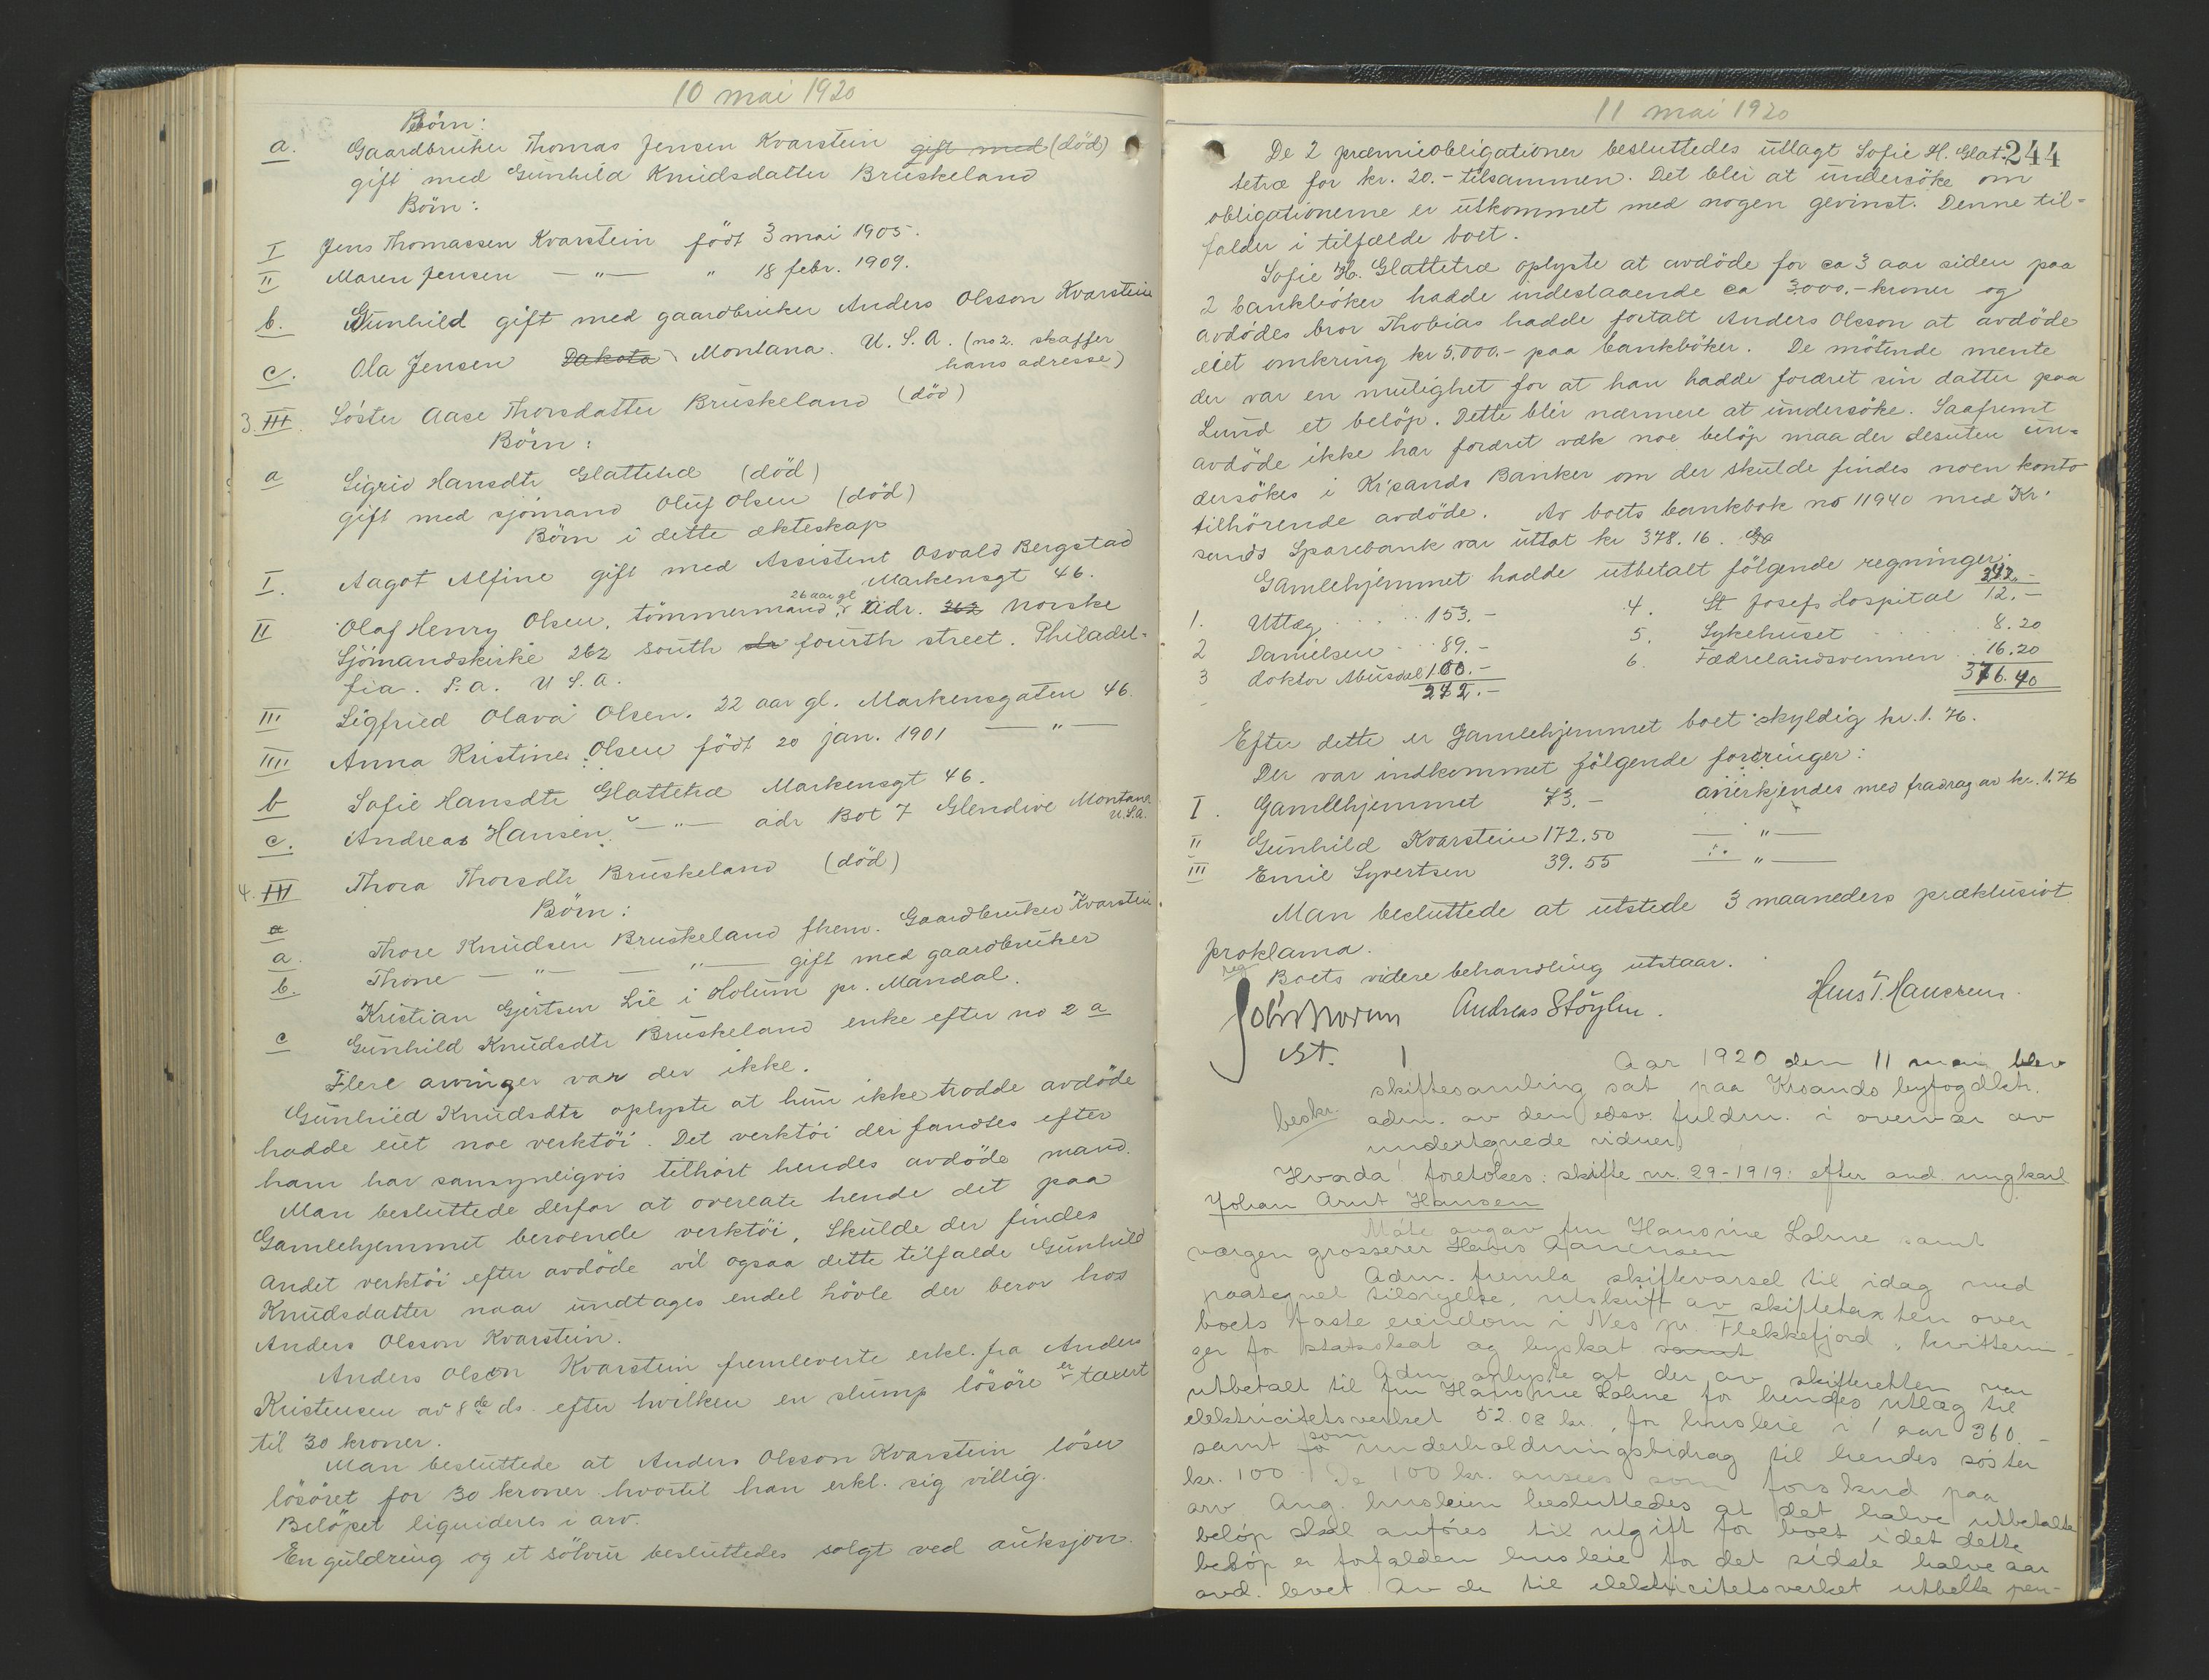 10 mai 1920
Börn:
a. Gaardbruker Thomas Jensen Kvarstein gift med (död)
gift med Gunhild Knudsdatter Bruskeland
Börn:
I Jens Thomassen Kvarstein födt 3 mai 1905.
II Maren Jensen —"— " 18 febr. 1909.
b. Gunhild gift med gaardbruker Anders Olsson Kvarstein
c. Ola Jensen Dakota Montana. U. S. A. (no 2. skaffer
hans adresse)
3. III. Söster Aase Thorsdatter Bruskeland (död)
Börn:
a Sigrid Hansdtr Glattetræ (död)
gift med sjömand Oluf Olsen (död)
Börn i dette ekteskap
I. Aagot Alfine gift med Assistent Osvald Bergstad
Markensgt 46.
II Olaf Henry Olsen, tömmermand, 26 aar gl adr. 262 Norske
Sjömandskirke 262 South str fourth street. Philadel-
fia. P.a. U S. A.
III Sigfried Olava Olsen. 22 aar gl. Markensgaten 46.
IIII Anna Kristine Olsen födt 20 jan. 1901 —"—
b Sofie Hansdtr Glattetræ Markensgt 46.
c. Andreas Hansen —"— adr Bot 7 Glendive Montana
U.S.a.
4. III Thora Thorsdtr Bruskeland (död)
Börn:
a
a. Thore Knudsen Bruskeland fhen. Gaardbruker Kvarstein.
b. Thone —"— —"— gift med gaardbruker
Kristian Gjertsen Lie i Holum pr. Mandal.
c Gunhild Knudsdtr Bruskeland enke efter no 2 a
Flere arvinger var der ikke.
Gunhild Knudsdtr oplyste at hun ikke trodde avdöde
hadde eiet noe verktöi. Det verktöi der fandtes efter
ham har sansynligvis tilhört hendes avdöde mand.
Man besluttede derfor at overlate hende det paa
Gamlehjemmet beroende verktöi. Skulde der findes
andet verktöi efter avdöde vil ogsaa dette tilfalde Gunhild
Knudsdatter naar undtages endel hövle der beror hos
Anders Olsson Kvarstein.
Anders Olsson Kvarstein fremleverte erkl. fra Anders
Kristensen av 8de ds. efter hvilken en slump lösöre er taxert
til 30 kroner.
Man besluttede at Anders Olsson Kvarstein löser
lösöret for 30 kroner hvortil han erkl. sig villig.
Belöpet liquideres i arv.
En guldring og et sölvur besluttedes solgt ved auksjon.
11 mai 1920
244
De 2 præmieobligationer besluttedes utlagt Sofie H. Glat-
tetræ for kr. 20.- tilsammen. Det blir at undersöke om
obligationerne er utkommet med nogen gevinst. Denne til-
falder i tilfælde boet.
Sofie H. Glattetræ oplyste at avdöde for ca 3 aar siden paa
2 bankböker hadde indestaaende ca 3000.- kroner og
avdödes bror Thobias hadde fortalt Anders Olsson at avdöde
eiet omkring kr 5.000.- paa bankböker. De mötende mente
der var en mulighet for at han hadde foræret sin datter paa
Lund et belöp. Dette blir nærmere at undersöke. Saafremt
avdöde ikke har foræret væk noe belöp maa der desuten un-
dersökes i Kr'sands Banker om der skulde findes noen konto
tilhörende avdöde. Av boets bankbok no 11940 med Kr.
sands Sparebank var uttat kr 378.16. Ga
Gamlehjemmet hadde utbetalt fölgende regninger.
1. Utlæg . . . . 153.-
2 Danielsen . . . 89.-
3 doktor Abusdal 100.-
242.-
242.-
4. St Josefs Hospital 12.-
5. Sykehuset . . . . 8.20
6. Fædrelandsvennen . . 16.20
376.40
Efter dette er Gamlehjemmet boet skyldig kr. 1.76.
Der var indkommet fölgende fordringer:
I. Gamlehjemmet 73.- anerkjendes med fradrag av kr. 1.76
II Gunhild Kvarstein 172.50 —"—
III Emil Syvertsen 39.55 —"—
Man besluttede at utstede 3 maaneders præklusivt
proklama.
reg
Boets videre behandling utstaar.
Andreas Stöylen.
Hans T. Hanssen.
Aar 1920 den 11 mai blev
skiftesamling sat paa Krsands byfogdktr.
beskr. adm. av den edsv. fuldm. i overvær av
undertegnede vidner
Hvorda foretokes: skifte nr. 29-1919: efter avd. ungkarl
Johan Arnt Hansen
Möte avgav fru Hansine Lohne samt
værgen grosserer
Adm. fremla skiftevarsel til idag med
paategnet tilsigelse, utskrift av skiftetaxten over
boets faste eiendom i Nes pr. Flekkefjord, kvitterin-
ger for statsskat og byskat samt
Adm. oplyste at der av skifteretten var
utbetalt til fru Hansine Lohne for hendes utlæg til
elektricitetsverket 52.08 kr., for husleie i 1 aar 360.-
samt som underholdningsbidrag til hendes söster
kr. 100. De 100 kr. ansees som forskud paa
arv Ang. husleien besluttedes at det halve utbetalte
belöp skal anföres til utgift for boet idet dette
belöp er forfalden husleie for det sidste halve aar
avd. levet. Av de til elektricitetsverket utbetlte pen-